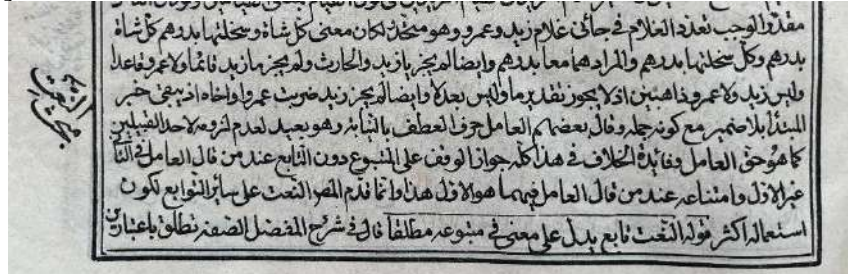 مقدر الوجب تعدد الغلام في جائني غلام زيد وعمرو وهو متحد لكان معنى كل شاة وسخلتها بدرهم كل شاة
بدرهم وكل سخلتها بدرهم والمراد هما معا بدرهم وايضا لم يجز يا زيد والحارث ولم يجز ما زيد قائما ولا عمرو قاعدا
وليس زيد ولا عمرو ذاهبين اذ لا يجوز تقدير ما وليس بعد لا وايضا لم يجز زيد ضربت عمرا واخاه اذ يبقى خبر
المبتدأ بلا ضمير مع كونه جملة وقال بعضهم العامل حرف العطف بالنيابة وهو بعيد لعدم لزومه لاحد القبيلين
كما هو حق العامل وفائدة الخلاف في هذا كله جواز الوقف على المتبوع دون التابع عند من قال العامل في الثاني
غير الاول وامتناعه عند من قال العامل فيهما هو الاول هذا وانما قدم المصر النعت على سائر التوابع لكون
استعماله اكثر قوله النعت تابع يدل على معنى في متبوعه مطلقا قال في شرح المفصل الصفة تطلق باعتبارين
مبحث النعت